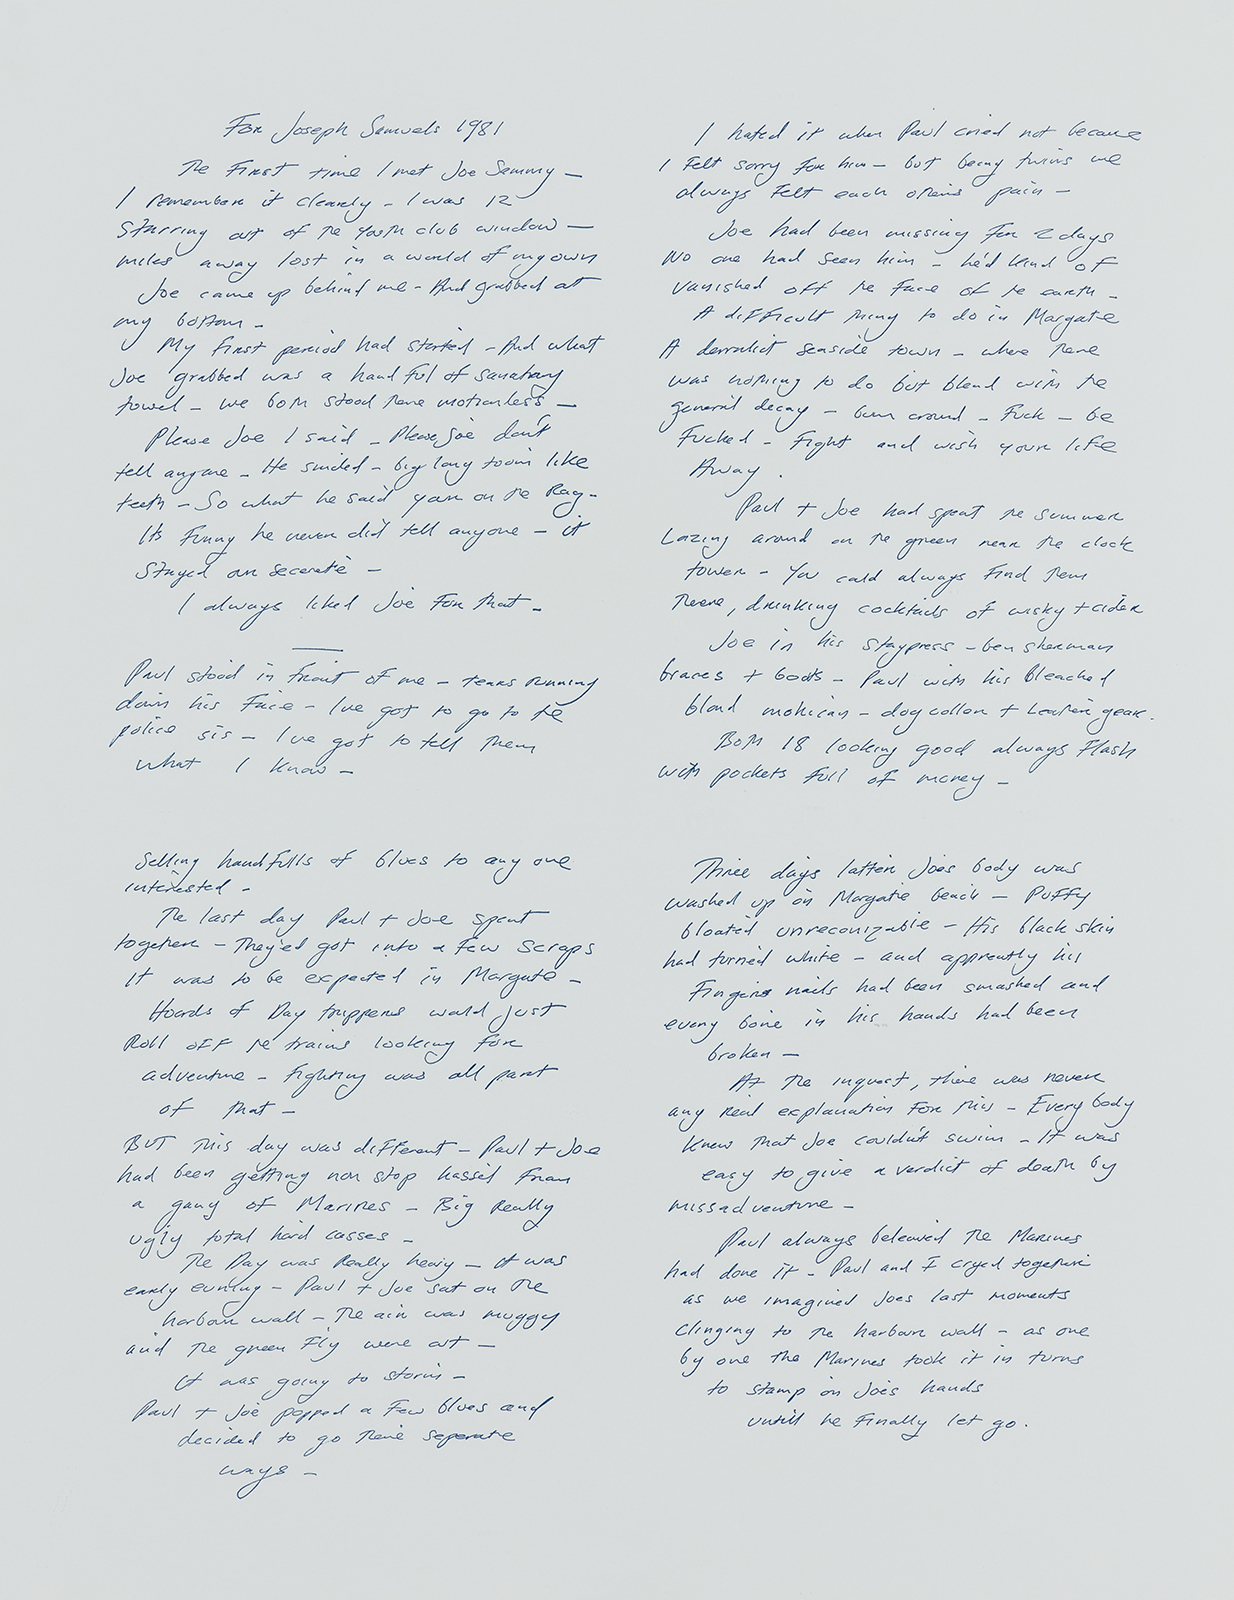 For Joseph Samuels 1981
The First time I met Joe Sammy –
I remember it clearly – I was 12
Starring out of the youth club window –
miles away lost in a world of my own
Joe came up behind me – And grabbed at
my bottom –
My first period had started – And what
Joe grabbed was a hand ful of sanatary
towel – we both stood there motionless –
Please Joe I said – Please Joe don't
tell anyone – He smiled – big long toom like
teeth – So what he said your on the Rag –
Its Funny he never did tell anyone – it
Stayed our secerate –
I always liked Joe For that –
Paul stood in front of me – tears running
down his Face – Ive got to go to the
police sis – I've got to tell Them
what I know –
I hated it when Paul cried not because
I Felt sorry For him – but being twins we
always Felt each others pain –
Joe had been missing For 2 days
No one had seen him – he'd kind of
vanished off the Face of the earth –
A difficult thing to do in Margate
A derralict seaside town – where there
was nothing to do but blend with the
general decay – bum around – Fuck – be
Fucked – Fight and wish your life
Away .
Paul + Joe had spent the summer
Lazing around on the green near the clock
tower – You could always Find them
There, drinking cocktails of wisky + cider
Joe in his staypress – ben sherman
braces + boots – Paul with his Bleached
blond mohican – dog collar + Leather gear.
Both 18 looking good always Flash
with pockets full of money –
Selling handfulls of blues to any one
interested –
The last day Paul + Joe spent
together – They'ed got into a Few scraps
It was to be expected in Margate –
Hoards of Day trippers would just
Roll off the trains looking for
adventure – fighting was all part
of that –
BUT This day was different – Paul + Joe
had been getting non stop hassil from
a gang of Marines – Big Really
ugly total hard casses –
The Day was Really heavy – It was
early evning – Paul + Joe sat on the
harbour wall – The air was muggy
and the green Fly were out –
It was going to storm –
Paul + Joe popped a Few blues and
decided to go their seperate
ways –
Three days latter Joes body was
washed up on Margate beach – Puffy
bloated unreconizable – His black skin
had turned white – and apprently his
Fingers nails had been smashed and
every bone in his hands had been
broken –
At the inquest, there was never
any real explanation For this – Every body
knew that Joe couldn't swim – It was
easy to give a verdict of death by
missadventure –
Paul always beleaved the Marines
had done it – Paul and I cryed together
as we imagined Joes last moments
clinging to the harbour wall – as one
by one the Marines took it in turns
to stamp on Joes hands
untill he Finally let go.